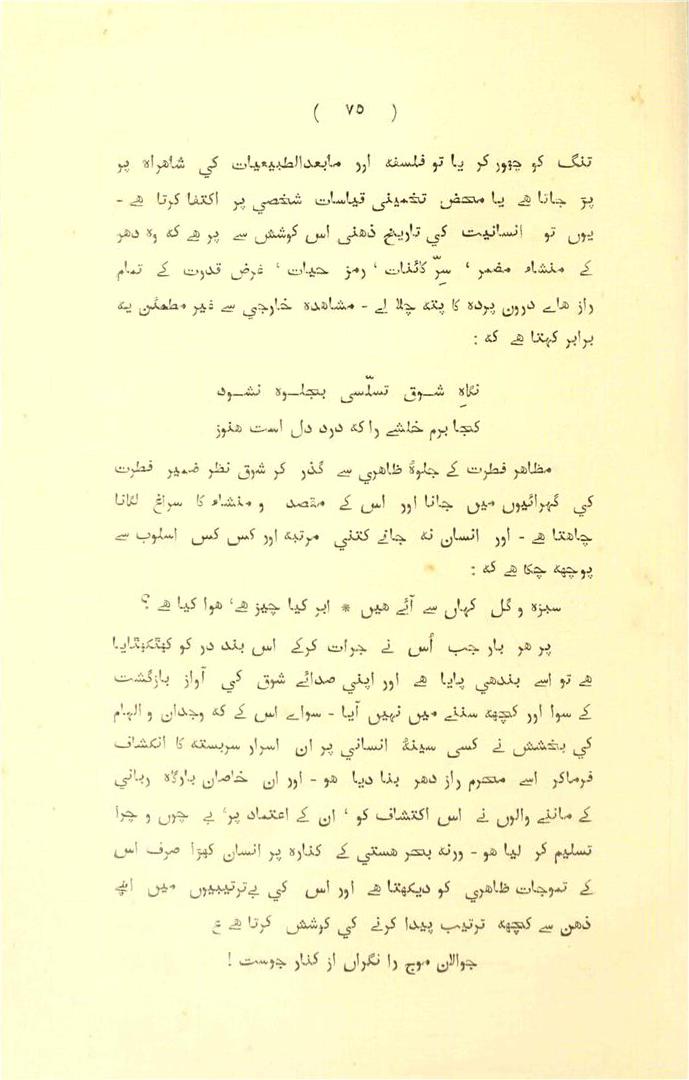 ( ٧٥ )
تنگ کو چھوڑ کر یا تو فلسفہ اور مابعدالطبیعیات کي شاھراہ پر
پڑ جاتا ھے یا محض تخمینی قیاسات شخصي پر اکتفا کرتا ھے -
یوں تو انسانیت کي تاریخ ذھنی اس کوشش سے پر ھے کہ وہ دھر
کے منشاء مضمر ، سرِّ کائنات ، رمز حیات ، غرض قدرت کے تمام
راز ھاے درون پردہ کا پتہ چلا لے - مشاھدہ خارجي سے غیر مطمئن یہ
برابر کہتا ھے کہ :
نگاہِ شوق تسلّسی بجلوہ نشود
کجا برم خلشے را کہ درد دل است ھنوز
مظاھر فطرت کے جلوۂ ظاھری سے گذر کر شوق نظر ضمیر فطرت
کي گہرائیوں میں جانا اور اس کے مقصد و منشاء کا سراغ لگانا
چاھتا ھے - اور انسان نہ جانے کتنی مرتبہ اور کس کس اسلوب سے
پوچھہ چکا ھے کہ :
سبزہ و گل کہاں سے آئے ھیں * ابر کیا چیز ھے، ھوا کیا ھے ؟
پر ھر بار جب اُس نے جرات کرکے اس بند در کو کھٹکھٹایا
ھے تو اسے بندھي پایا ھے اور اپني صدائے شوق کي آواز بازگشت
کے سوا اور کچھہ سننے میں نہیں آیا - سواے اس کے کہ وجدان و الہام
کي بخشش نے کسی سینۂ انساني پر ان اسرار سربستہ کا انکشاف
فرماکر اسے محرم راز دھر بنا دیا ھو - اور ان خاصان بارگاہ رباني
کے ماننے والوں نے اس اکتشاف کو ، ان کے اعتماد پر، بے چوں و چرا
تسلیم کر لیا ھو - ورنہ بحر ھستي کے کنارہ پر انسان کھڑا صرف اس
کے تموجات ظاھري کو دیکھتا ھے اور اس کي بےترتیبیوں میں اپنے
ذھن سے کچھہ ترتیب پیدا کرنے کي کوشش کرتا ھے ع
جولان موج را نگراں از کنار جوست !